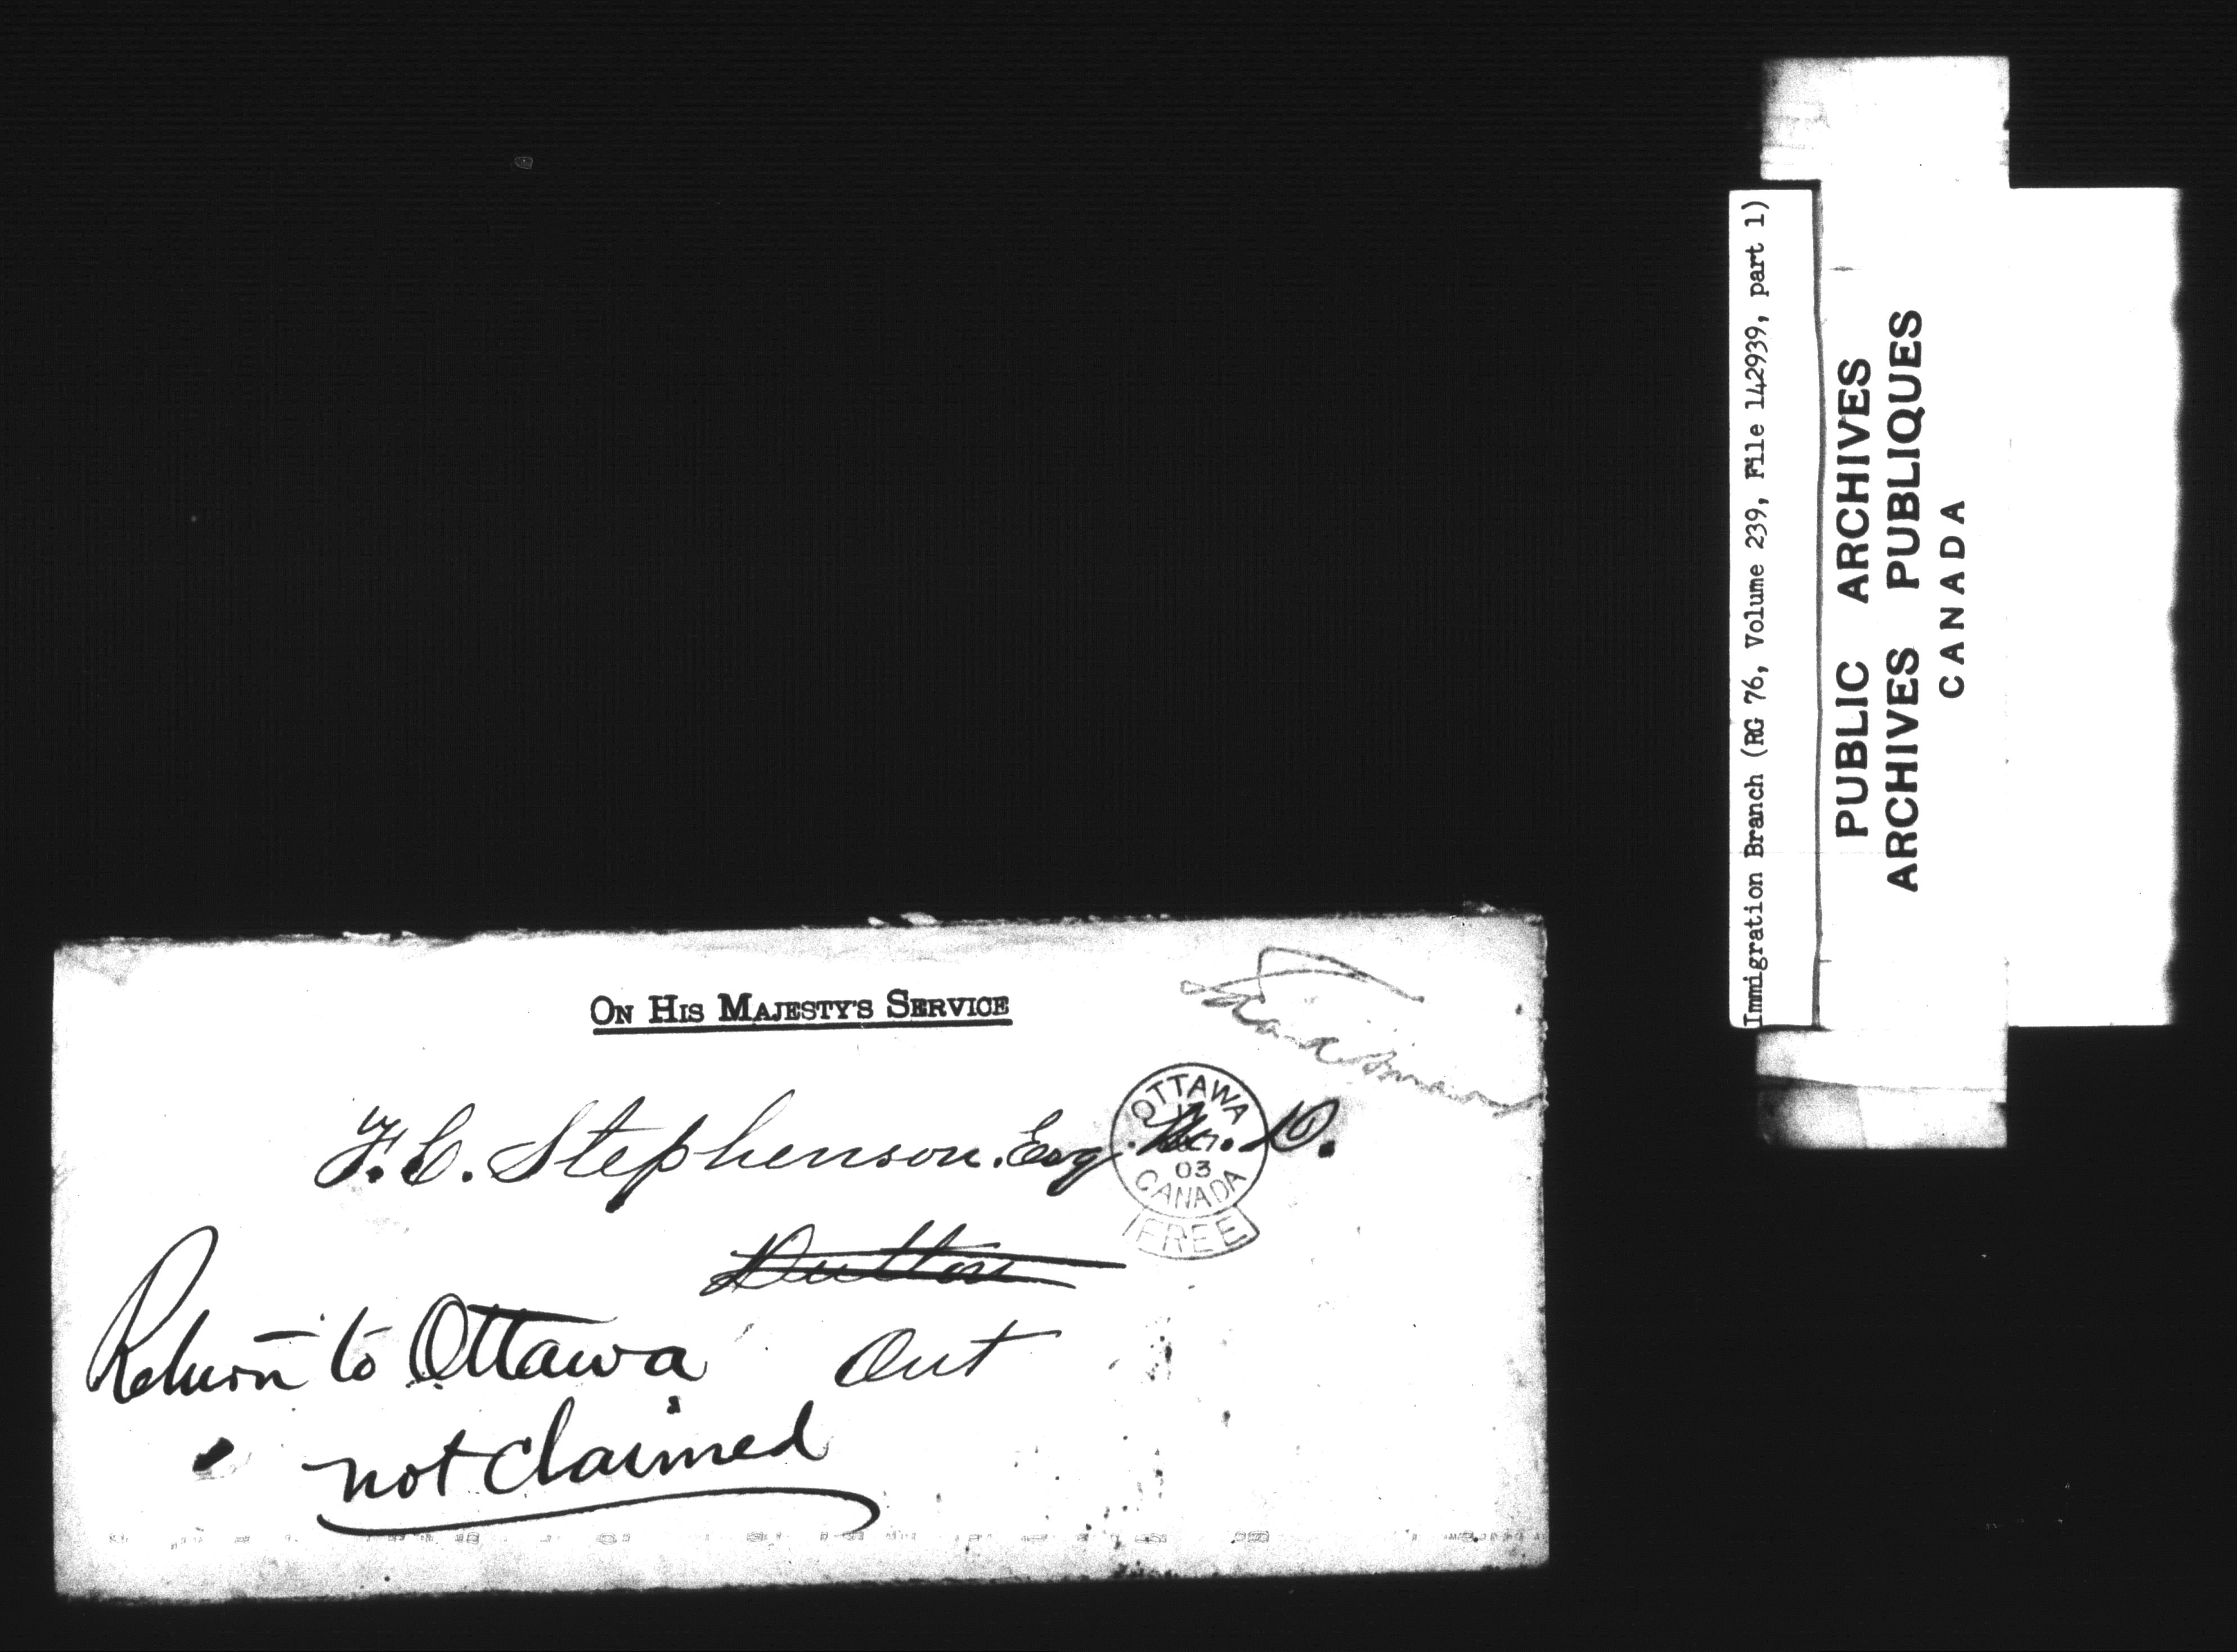 ON HIS MAJESTY'S SERVICE
F. C. Stephenson. Esq. M. D.
OTTAWA
03
CANADA
FREE
Dutton
Return to Ottawa
Ont
not claimed
Immigration Branch (RG 76, Volume 239, File 142939, part 1)
PUBLIC ARCHIVES
ARCHIVES PUBLIQUES
CANADA